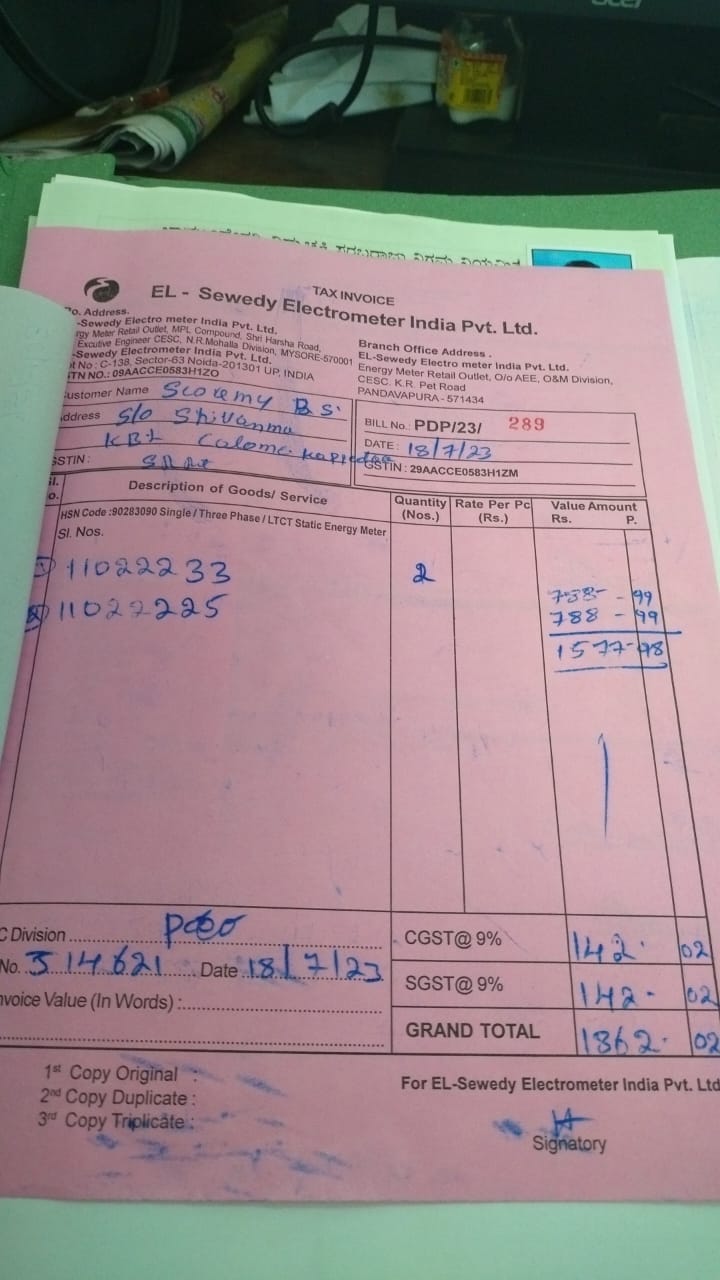 acer
TAX INVOICE
EL - Sewedy Electrometer India Pvt. Ltd.
o. Address.
-Sewedy Electro meter India Pvt. Ltd.
rgy Meter Retail Outlet, MPL Compound, Shri Harsha Road,
Excutive Engineer CESC, N.R.Mohalla Division, MYSORE-570001
-Sewedy Electrometer India Pvt. Ltd.
t No : C-138, Sector-63 Noida-201301 UP, INDIA
TN NO.: 09AACCE0583H1ZO
Branch Office Address .
EL-Sewedy Electro meter India Pvt. Ltd.
Energy Meter Retail Outlet, O/o AEE, O&M Division,
CESC. K.R. Pet Road
PANDAVAPURA - 571434
ustomer Name B S.
ddress S/o Shivanna
SSTIN :
BILL No.: PDP/23/ 289
DATE : 18/7/23
GSTIN : 29AACCE0583H1ZM
Sl. No. Description of Goods/ Service Quantity (Nos.) Rate Per Pc (Rs.) Value Amount Rs. P.
HSN Code :90283090 Single / Three Phase / LTCT Static Energy Meter
Sl. Nos.
1) 11022233 2 788 - 99
2) 11022225 788 - 99
1577-98
C Division
No. 314621 Date 18/7/23
nvoice Value (In Words) :
CGST@ 9% 142. 02
SGST@ 9% 142 - 02
GRAND TOTAL 1862. 02
1st Copy Original :
2nd Copy Duplicate :
3rd Copy Triplicate :
For EL-Sewedy Electrometer India Pvt. Ltd
Signatory